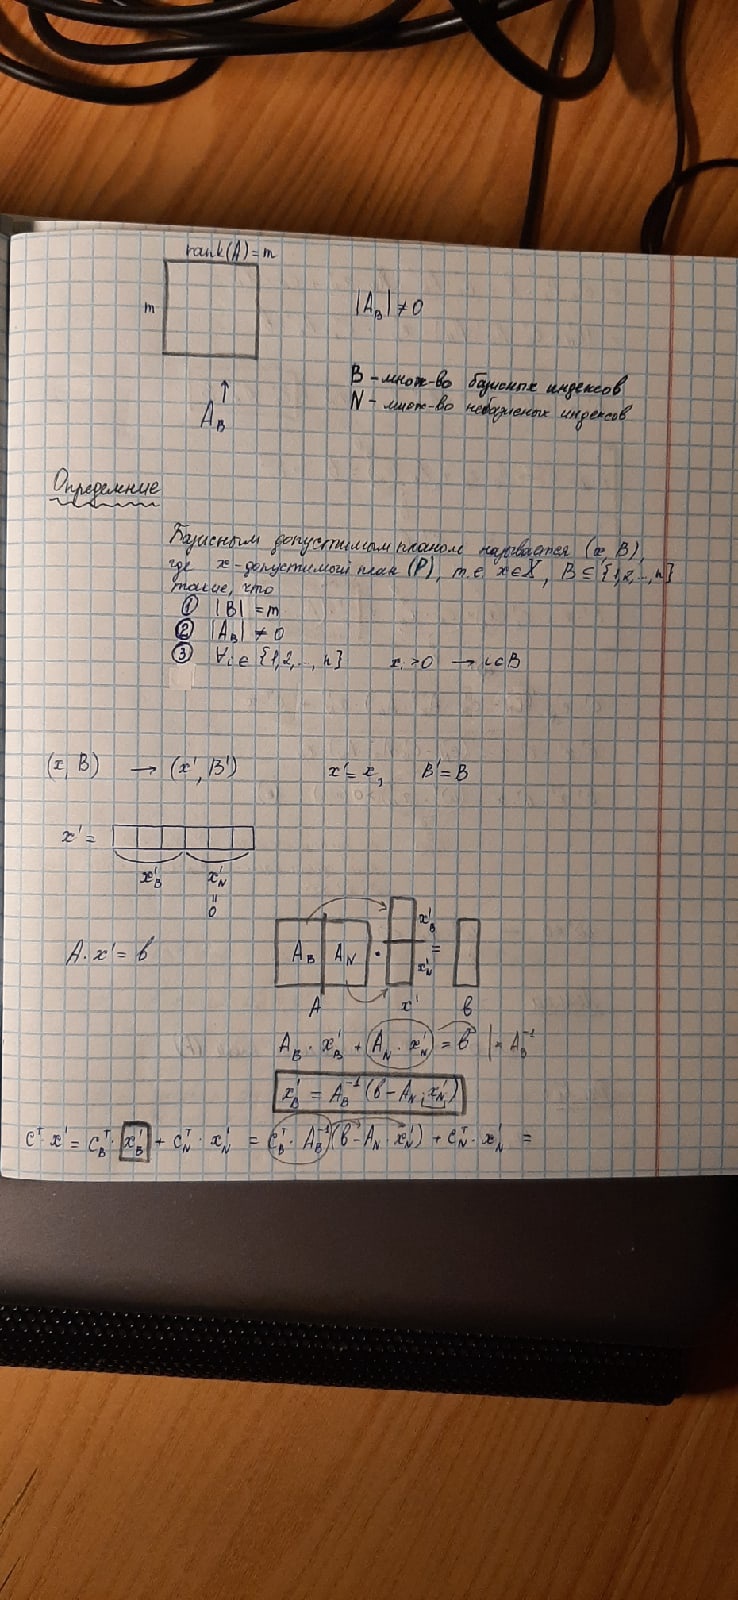 rank(A) = m
m
|A_B| ≠ 0
A_B
B - множ-во базисных индексов
N - множ-во небазисных индексов
Определение
Базисным допустимым планом называется (x, B),
где x - допустимый план (P), т.е. x ∈ X, B ⊆ {1,2,...,n}
такие, что
① |B| = m
② |A_B| ≠ 0
③ ∀i ∈ {1,2,...,n} x_i > 0 → i ∈ B
(x, B) → (x', B') x' = x, B' = B
x' =
x'_B x'_N
"
0
A · x' = b
A_B A_N · x'_B x'_N =
A x' b
A_B · x'_B + A_N · x'_N = b | · A_B^{-1}
x'_B = A_B^{-1} (b - A_N · x'_N)
c^T · x' = c_B^T · x'_B + c_N^T · x'_N = c_B^T · A_B^{-1} (b - A_N · x'_N) + c_N^T · x'_N =